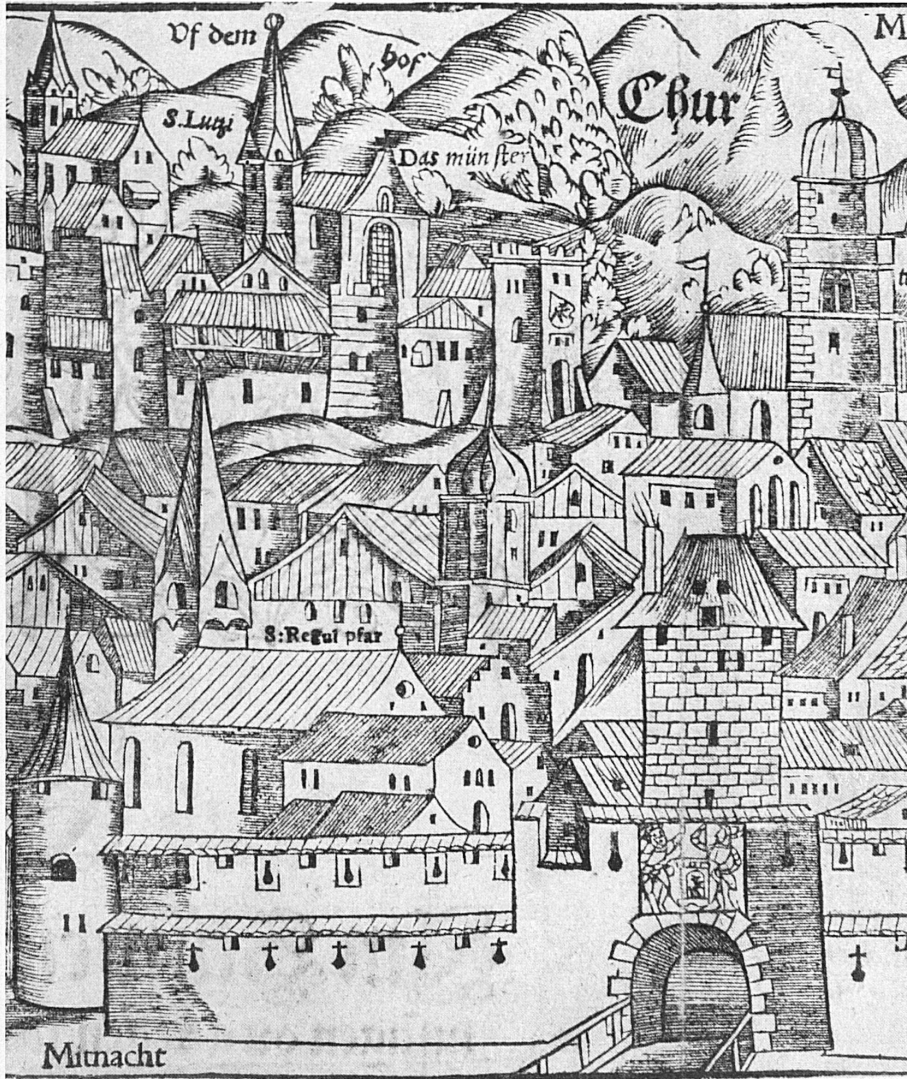 Vf dem
hof
M
S. Lutzi
Chur
Das münster
S: Regul pfar
Mitnacht